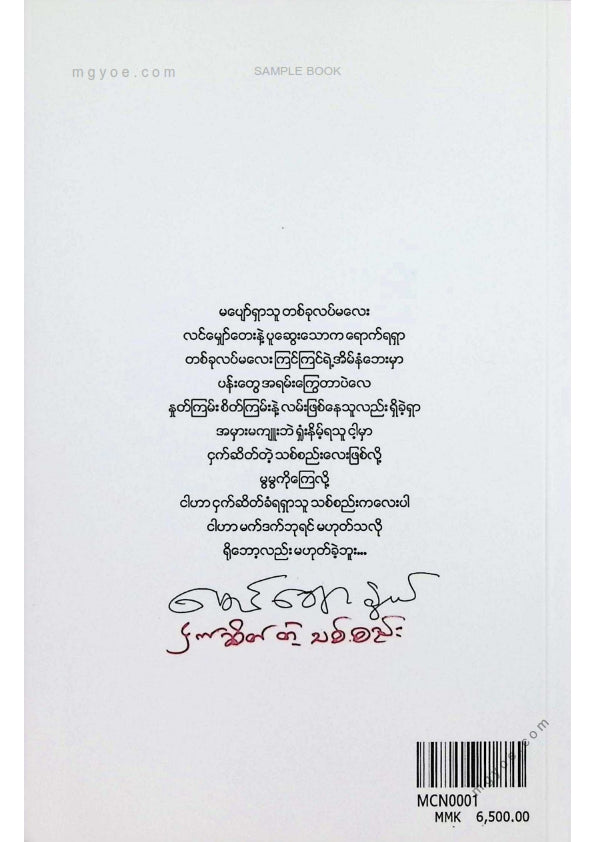 mgyoe.com
SAMPLE BOOK
မပျော်ရှာသူ တစ်ခုလပ်မလေး
လင်မျှော်တေးနဲ့ ပူဆွေးသောက ရောက်ရရှာ
တစ်ခုလပ်မလေး ကြင်ကြင်ရဲ့အိမ်နံဘေးမှာ
ပန်းတွေ အရမ်းကြွေတာပဲလေ
နှုတ်ကြမ်း စိတ်ကြမ်းနဲ့ လမ်းဖြစ်နေသူလည်း ရှိခဲ့ရှာ
အမှားမကျူးဘဲ ရှုံးနိမ့်ရသူ ငါ့မှာ
ငှက်ဆိတ်တဲ့ သစ်စည်းလေးဖြစ်လို့
မွမွကိုကြေလို့
ငါဟာ ငှက်ဆိတ်ခံရရှာသူ သစ်စည်းကလေးပါ
ငါဟာ မက်ဒက်ဘုရင် မဟုတ်သလို
ရိုဘော့လည်း မဟုတ်ခဲ့ဘူး...
ငှက်ဆိတ်တဲ့ သစ်စည်း
mgyoe.com
MCN0001
MMK 6,500.00